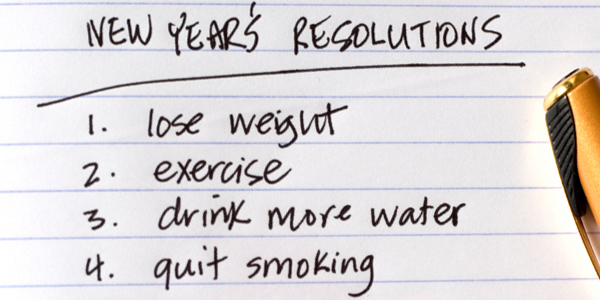 NEW YEAR'S RESOLUTIONS
1. lose weight
2. exercise
3. drink more water
4. quit smoking